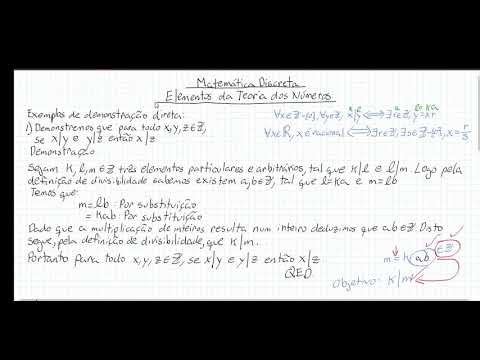 Matemática Discreta
Elementos da Teoria dos Números
Exemplos de demonstração direta:
1) Demonstremos que para todo x,y,z∈ℤ,
se x|y e y|z então x|z
Demonstração
Sejam k,l,m∈ℤ três elementos particulares e arbitrários, tal que k|l e l|m. Logo pela
definição de divisibilidade sabemos existem a,b∈ℤ, tal que l=ka e m=lb
Temos que:
m=lb : Por substituição
= kab : Por substituição
Dado que a multiplicação de inteiros resulta num inteiro deduzimos que ab∈ℤ. Disto
segue, pela definição de divisibilidade, que k|m.
Portanto para todo x,y,z∈ℤ, se x|y e y|z então x|z
QED
∀x∈ℤ-{0}, ∀y∈ℤ, x|y ⟺ ∃r∈ℤ, y=xr
∀x∈ℝ, x é racional ⟺ ∃r∈ℤ, ∃s∈ℤ-{0}, x = r/s
m = k(ab) ∈ℤ
Objetivo: k|m